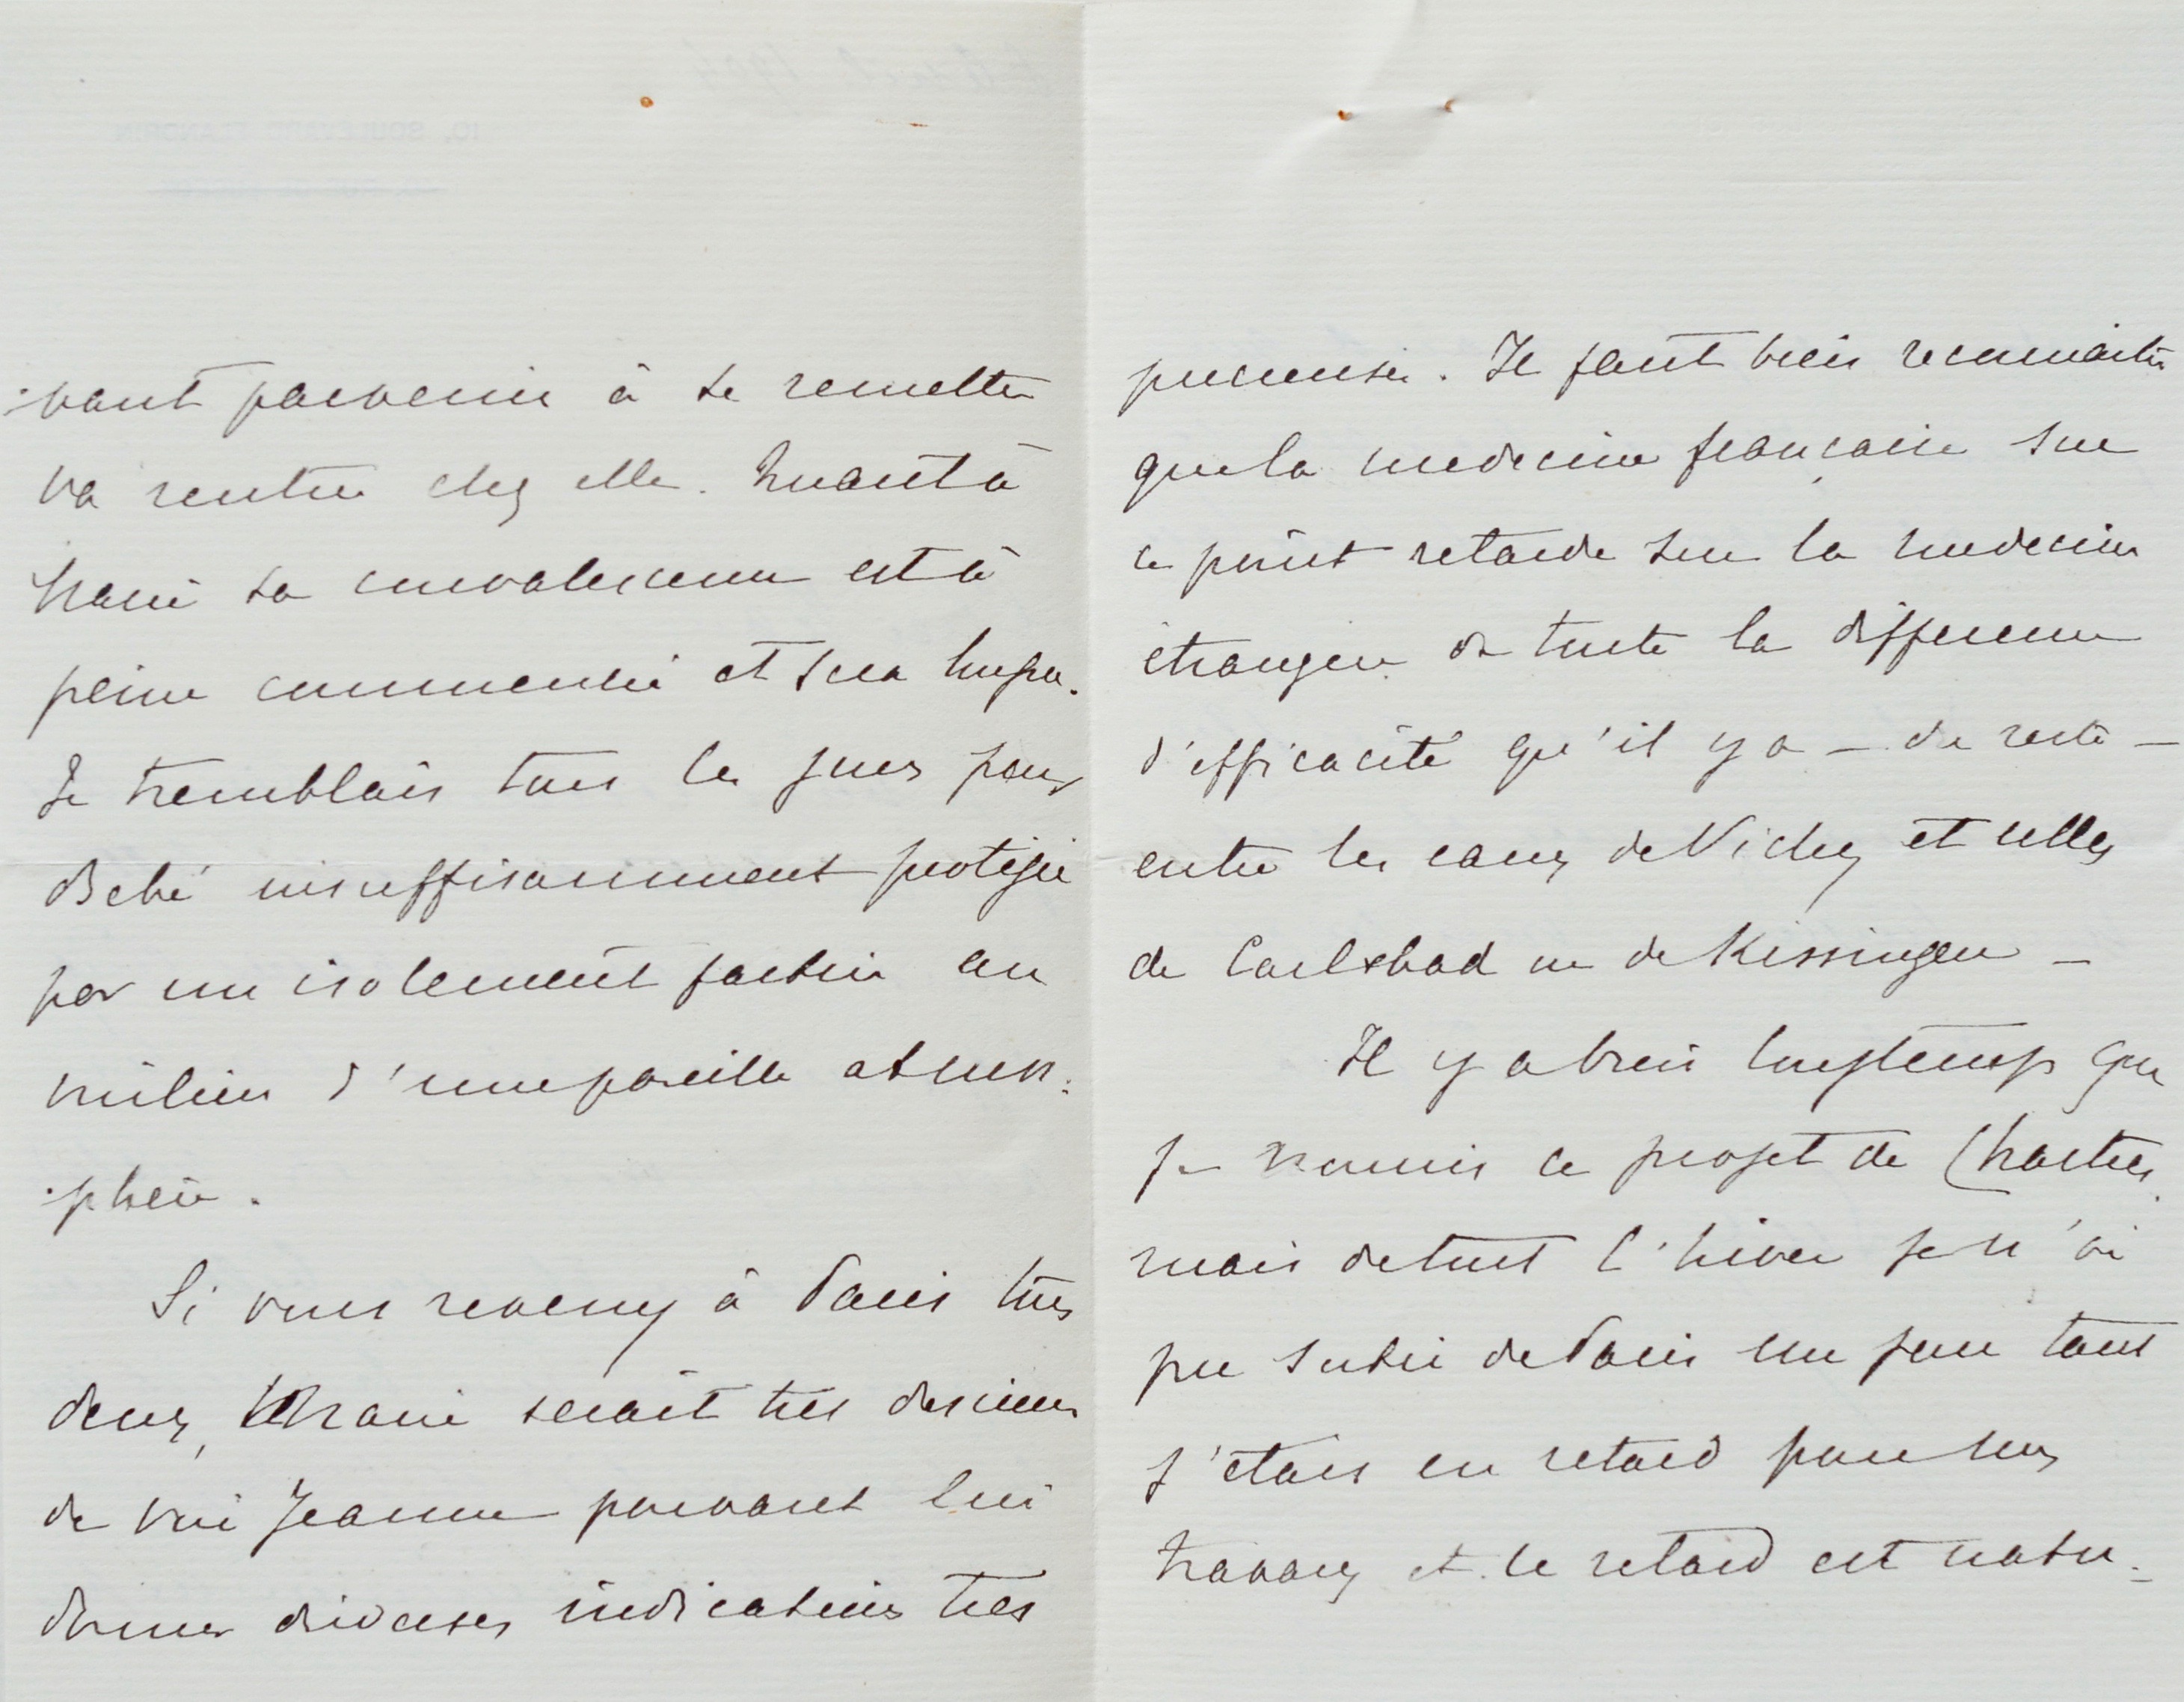 vant parvenir à se remettre
va rentrer chez elle. Quant à
Marie sa convalescence est à
peine commencée et sera longue.
Je tremblais tous les jours pour
Bébé insuffisamment protégée
par un isolement factice au
milieu d'une pareille atmos-
phère.
Si vous revenez à Paris tous
deux, Marie serait très désireuse
de voir Jeanne pouvant lui
donner diverses indications très
précieuses. Il faut bien reconnaître
que la médecine française sur
ce point retarde sur la médecine
étrangère de toute la différence
d'efficacité qu'il y a — du reste —
entre les eaux de Vichy et celles
de Carlsbad ou de Kissingen —
Il y a bien longtemps que
je nourris ce projet de Chartres
mais de tout l'hiver je n'ai
pu sortir de Paris un jour tant
j'étais en retard pour mes
travaux et le retard est natu-
10, BOULEVARD FLANDRIN
1904